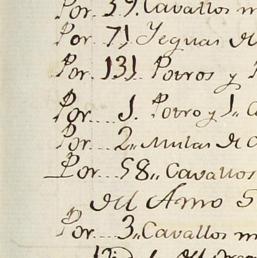 Por. 39. Cavallos m
Por. 71 Yeguas de
Por. 131. Potros y P
Por... 1. Potro y 1.. C
Por... 2.. Mulas de c
Por... 58.. Cavallos
del Amo 5
Por. 3.. Cavallos m